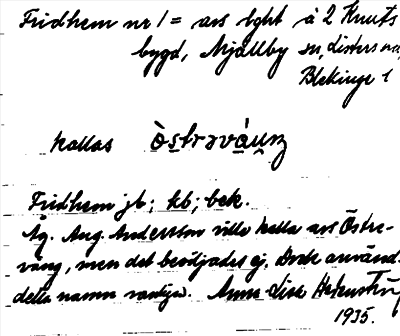 Fridhem nr 1 = avs lght å 2 Knuts
bygd, Mjällby sn, Listers
Blekinge l
kallas òstrəvàŋ
Fridhem jb; kb; bek.
Äg. Aug. Andersson ville kalla avs Östre-
vång, men det beviljades ej. Dock användes
detta namn vanligen. Anna-Lisa
1935.